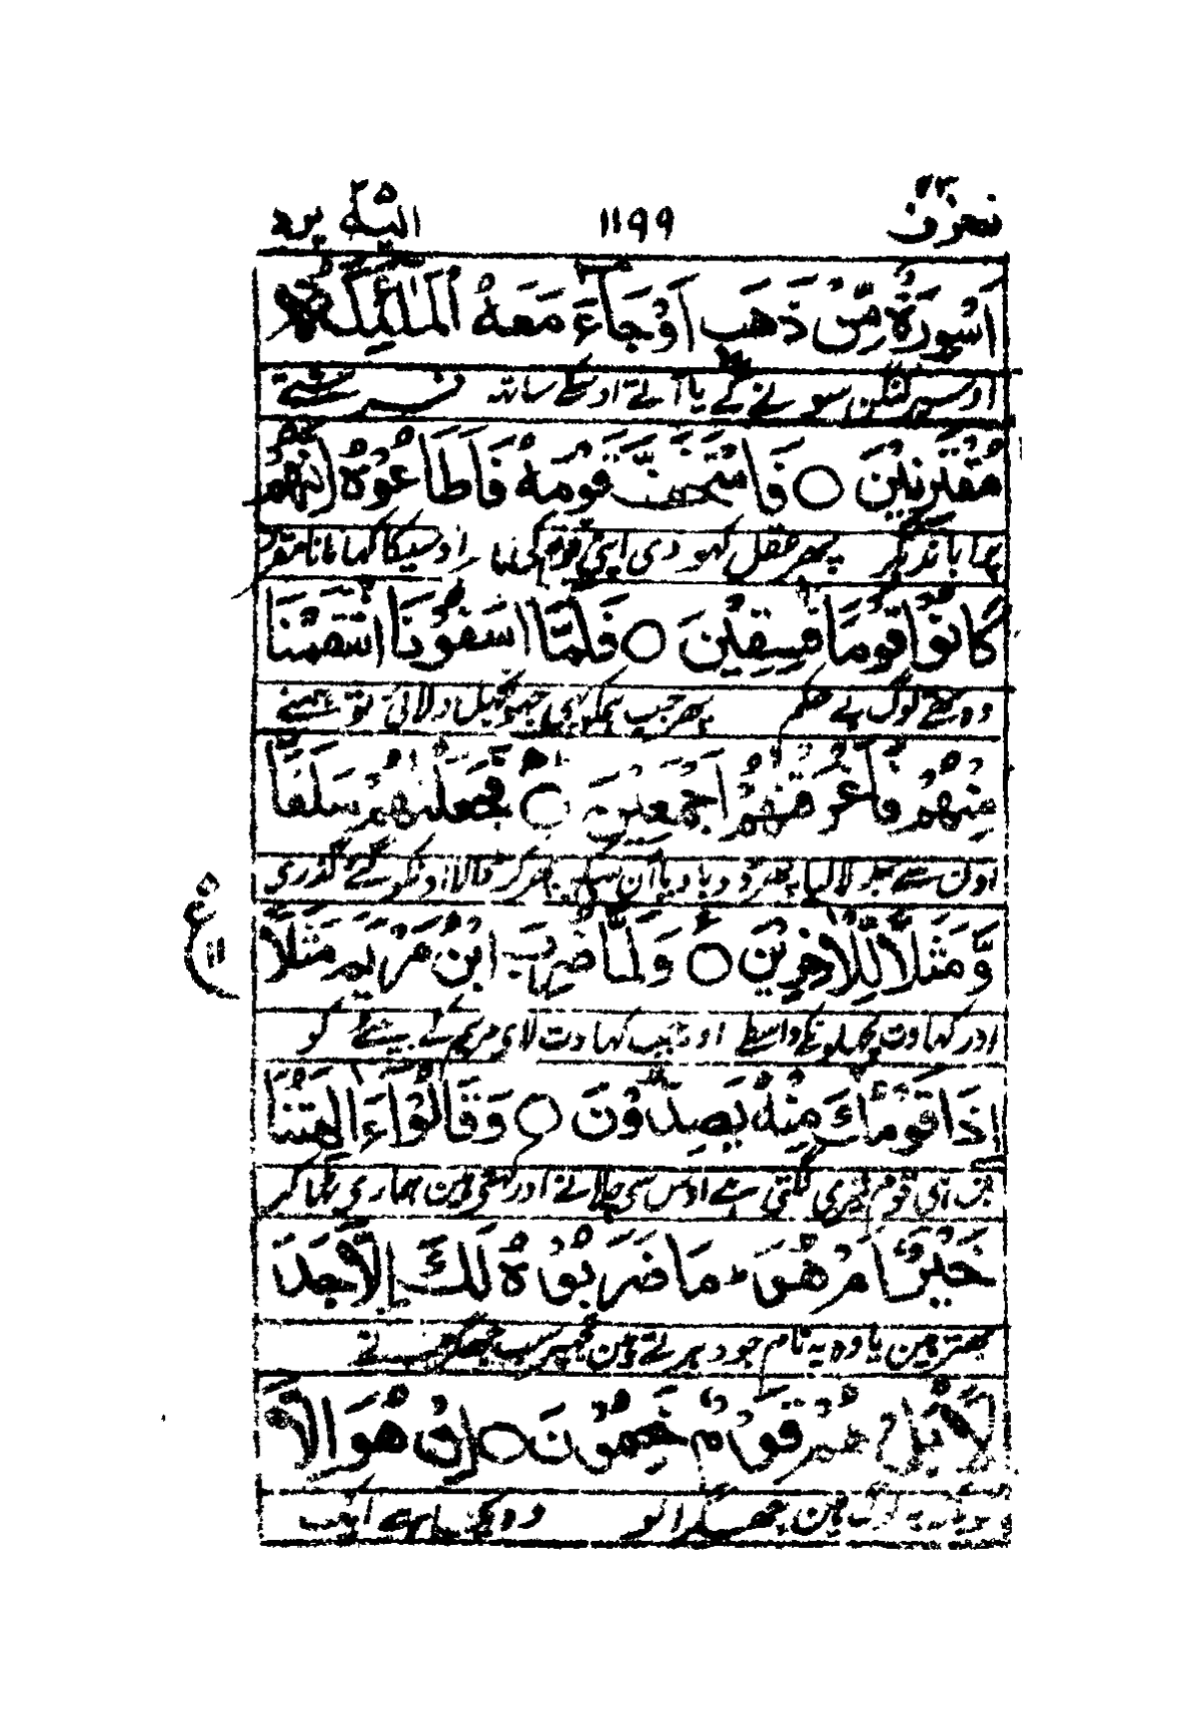 زخرف ٤٣ ١١٩٩ اليه يرد ٢٥
اَسْوِرَةٌ مِّنْ ذَهَبٍ اَوْ جَآءَ مَعَهُ الْمَلٰٓئِكَةُ
اوسپر کنگن سونے کے یا آتے اوسکے ساتھ فرشتے
مُقْتَرِنِيْنَ ○ فَاسْتَخَفَّ قَوْمَهٗ فَاَطَاعُوْهُ اِنَّهُمْ
پرا باندہکر پھر عقل کہو دی اپنی قوم کی اوسیکا کہا مانا مقرر
كَانُوْا قَوْمًا فٰسِقِيْنَ ○ فَلَمَّآ اٰسَفُوْنَا انْتَقَمْنَا
وہ تھے لوگ بے حکم پھر جب ہمکو جہونجہل دلائی تو ہمنے
مِنْهُمْ فَاَغْرَقْنٰهُمْ اَجْمَعِيْنَ ○ فَجَعَلْنٰهُمْ سَلَفًا
اون سے بدلا لیا پھر ڈوبا دیا اُن سبکو پھر کر ڈالا اونکو گئے گذری
وَّمَثَلًا لِّلْاٰخِرِيْنَ ○ وَلَمَّا ضُرِبَ ابْنُ مَرْيَمَ مَثَلًا
ع ١١
اور کہاوت پچھلونکے واسطے اور جب کہاوت لائی مریم کے بیٹے کو
اِذَا قَوْمُكَ مِنْهُ يَصِدُّوْنَ ○ وَقَالُوْٓا ءَاٰلِهَتُنَا
قوم تیری لگتی ہے اوس سی چلانے اور کہتی ہین ہماری ٹھاکر
خَيْرٌ اَمْ هُوَ ؕ مَا ضَرَبُوْهُ لَكَ اِلَّا جَدَ
بہتر ہین یا وہ یہ نام جو دہرتے ہین تجھپر سب جھگڑنے
لًا بَلْ هُمْ قَوْمٌ خَصِمُوْنَ ○ اِنْ هُوَ اِلَّا
یہ لوگ ہین جھگڑالو وہ کیا ہے ایک